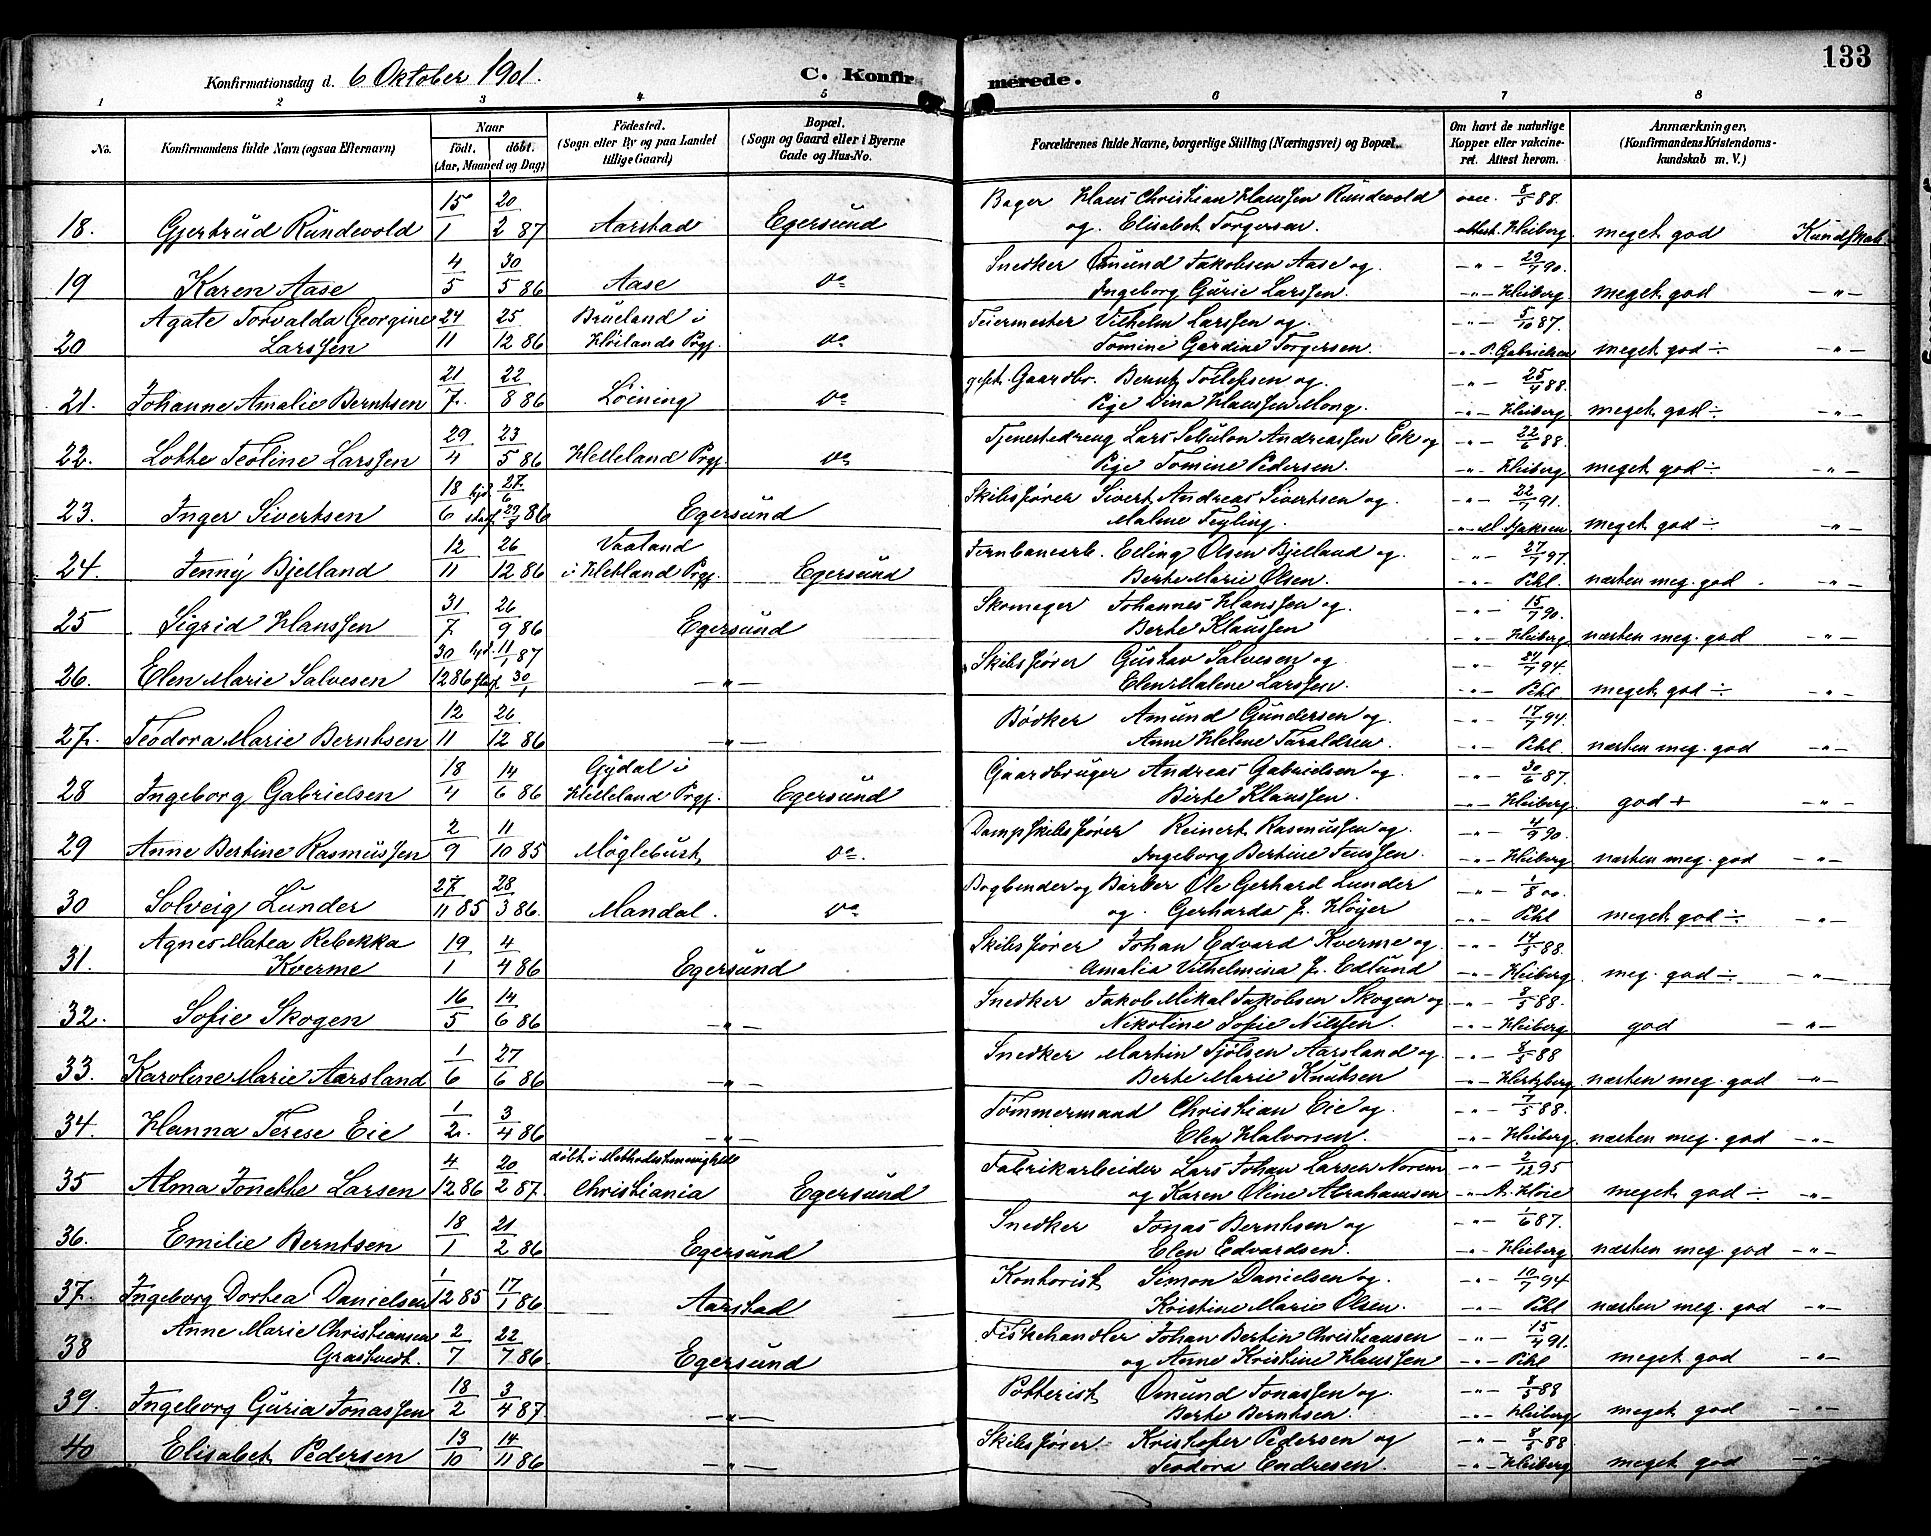 133
Konfirmationsdag d. 6 Oktober 1901.
C. Konfirmerede.
1 2 3 4 5 6 7 8
No. Konfirmandens fulde Navn (ogsaa Efternavn) Naar Födt. döbt. (Aar, Maaned og Dag) Födested. (Sogn eller By og paa Landet tillige Gaard) Bopæl. (Sogn og Gaard eller i Byerne Gade og Hus-No. Forældrenes fulde Navne, borgerlige Stilling (Næringsvei) og Bopæl. Om havt de naturlige Kopper eller vakcineret. Attest herom. Anmærkninger, (Konfirmandens Kristendomskundskab m. V.)
15 20 Bager Hans Christian Hanssen Rundevold vacc. 8/5 88.
18. Gjertrud Rundevold 1 2 87 Aarstad Egersund og Elisabet Torgersen. attest. Heiberg meget god Kundskab
4 30 Snedker Omund Jakobsen Aase og -"- 29/7 90.
19 Karen Aase 5 5 86 Aase Do Ingeborg Gurie Larssen. -"- Heiberg meget god -"-
Agate Torvalda Georgine 24 25 Brueland i Feiermester Vilhelm Larssen og -"- 5/10 87.
20 Larssen 11 12 86 Høilands Prgj. Do Tomine Gardine Torgersen. -"- P. Gabrielsen meget god ÷ -"-
21 22 Gaardbr. Bernt Tollefsen og -"- 25/4 88.
21. Johanne Amalie Berntsen 7 8 86 Løining Do Pige Dina Hanssen Mong. -"- Heiberg meget god ÷ -"-
29 23 Tjenestedreng Lars Sebulon Andreassen Ek og -"- 22/6 88.
22. Lotte Teoline Larssen 4 5 86 Helleland Prgj. Do Pige Tomine Pedersen. -"- Heiberg meget god ÷ -"-
18 hjd. 27/6 Skibsfører Sivert Andreas Sivertsen og -"- 22/7 91.
23. Inger Sivertsen 6 86 Egersund Malene Feyling. -"- meget god ÷ -"-
12 26 Vaaland Jernbanearb. Erling Olsen Bjelland og -"- 27/7 97.
24. Jenny Bjelland 11 12 86 i Hetland Prgj. Egersund Berte Marie Olsen. -"- Pihl næsten meg. god -"-
31 26 Skomager Johannes Hanssen og -"- 15/7 90.
25 Sigrid Hanssen 7 9 86 Egersund Berte Klaussen -"- Heiberg næsten meg. god -"-
30 hjd. 11/1 87 Skibsfører Gustav Salvesen og -"- 24/7 94.
26. Elen Marie Salvesen 12 86 30/1 -"- Elen Malene Larssen. -"- Pihl meget god ÷ -"-
12 26 Bødker Amund Gundersen og -"- 17/7 94.
27. Teodora Marie Berntsen 11 12 86 -"- Anne Helene Taraldsen. -"- Pihl næsten meg. god -"-
18 14 Gydal i Gaardbruger Andreas Gabrielsen og -"- 30/6 87.
28 Ingeborg Gabrielsen 4 6 86 Helleland Prgj. Egersund Birte Klaussen. -"- Heiberg god + -"-
2 11 Dampskibsfører Reinert Rasmussen og -"- 4/9 90.
29 Anne Bertine Rasmussen 9 10 85 Møglebust Do. Ingeborg Bertine Jenssen. -"- Heiberg næsten meg. god -"-
27 28 Bogbinder og Barber Ole Gerhard Lunder -"- 1/8 00.
30 Solveig Lunder 11 85 3 86. Mandal. Do og Gerharda f. Høyer -"- Pihl meget god ÷ -"-
Agnes Matea Rebekka 19 4 Skibsfører Johan Edvard Kverme og -"- 14/5 88.
31. Kverme 1 4 86 Egersund Amalia Vilhelmina f. Edlund -"- Heiberg meg. god ÷ -"-
16 14 Snedker Jakob Mikal Jakobsen Skogen og -"- 8/5 88.
32. Sofie Skogen 5 6 86 -"- Nikoline Sofie Nilssen. -"- Heiberg god -"-
1 27 Snedker Martin Tjølsen Aarsland og -"- 8/5 88
33. Karoline Marie Aarsland 6 6 86 -"- Berte Marie Knutsen -"- Hertzberg næsten meg. god -"-
1 3 Tømmermand Christian Eie og -"- 7/5 88.
34. Hanna Terese Eie 2. 4 86 -"- Elen Halvorsen. -"- Heiberg. næsten meg. god -"-
4 20 døbt i Methodistmenighed Fabrikarbeider Lars Johan Larsen Norem -"- 2/12 95
35 Alma Jonette Larsen 12 86 2 87. Christiania Egersund og Karen Oline Abrahamsen -"- A. Høie meget god ÷ -"-
18 21 Snedker Jonas Berntsen og -"- 1/6 87.
36. Emilie Berntsen 1 2 86 Egersund Elen Edvardsen. -"- Heiberg næsten meg. god -"-
1 17 Kontorist Simon Danielsen og -"- 10/7 94
37. Ingeborg Dortea Danielsen 12 85 1 86 Aarstad Kristine Marie Olsen. -"- Pihl næsten meg. god -"-
Anne Marie Christiansen 2 22 Fiskehandler Johan Bertin Christiansen -"- 15/4 91.
38 Grastvedt. 7 7 86 Egersund og Anne Kristine Hanssen -"- Pihl meget god -"-
18 3 Potterist Omund Jonassen og -"- 8/5 88
39. Ingeborg Guria Jonassen 2 4 87 -"- Berte Berntsen. -"- Heiberg meget god -"-
13 14 Skibsfører Kristofer Pedersen og -"- 8/5 88
40 Elisabet Pedersen 10 11 86 -"- Teodora Endresen. -"- Heiberg meget god -"-